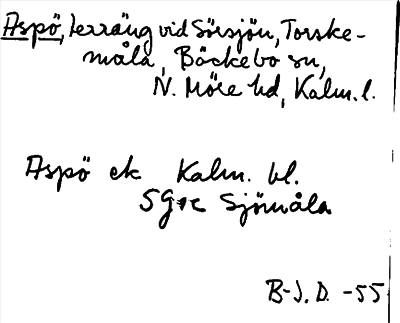 Aspö, terräng vid Sörsjön, Torske-
måla, Bäckebo sn,
N. Möre hd, Kalm. l.
Aspö ek Kalm. bl.
5G Sjömåla
B-J. D. -55